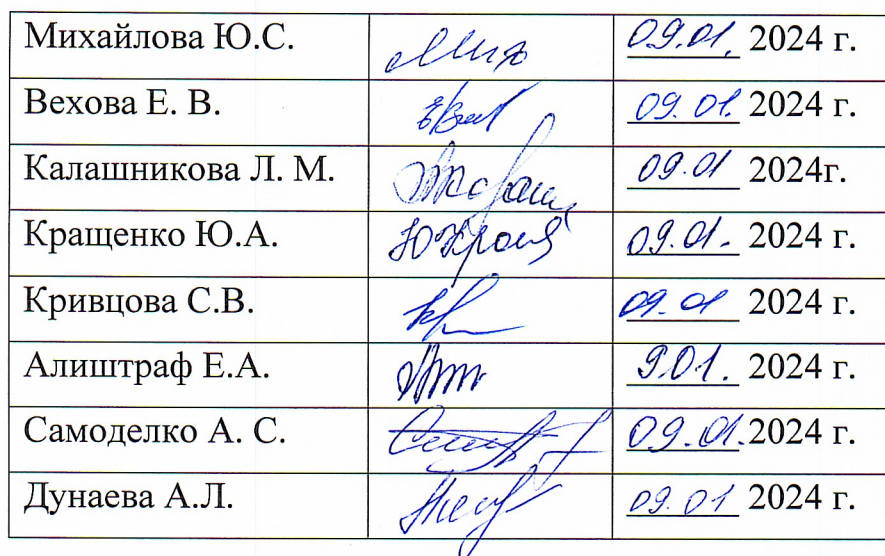 Михайлова Ю.С. 09.01. 2024 г.
Вехова Е. В. 09.01. 2024 г.
Калашникова Л. М. 09.01 2024г.
Кращенко Ю.А. 09.01. 2024 г.
Кривцова С.В. 09.01 2024 г.
Алиштраф Е.А. 9.01. 2024 г.
Самоделко А. С. 09.01.2024 г.
Дунаева А.Л. 09.01 2024 г.